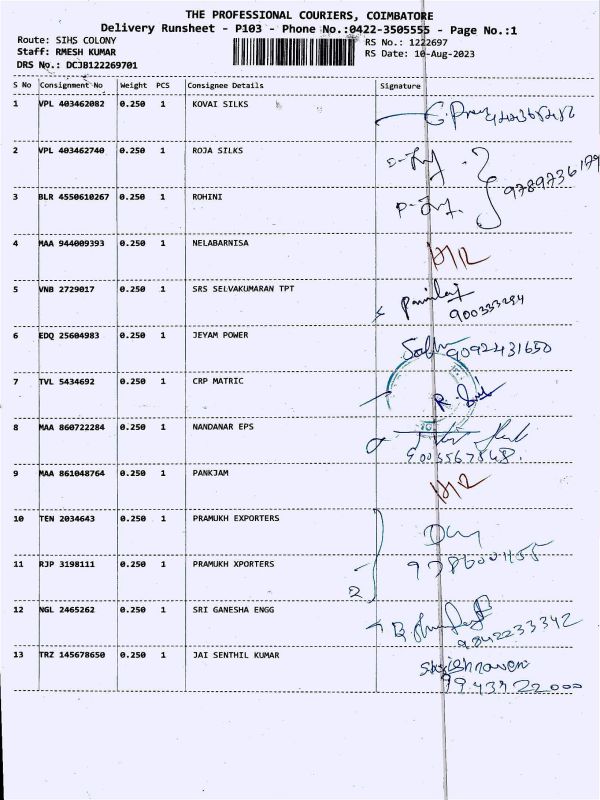 THE PROFESSIONAL COURIERS, COIMBATORE
Delivery Runsheet - P103 - Phone No.:0422-3505555 - Page No.:1
Route: SIHS COLONY
RS No.: 1222697
Staff: RMESH KUMAR
RS Date: 10-Aug-2023
DRS No.: DCJB122269701
S No Consignment No Weight PCS Consignee Details Signature
1 VPL 403462082 0.250 1 KOVAI SILKS
2 VPL 403462740 0.250 1 ROJA SILKS
3 BLR 4550610267 0.250 1 ROHINI
4 MAA 944009393 0.250 1 NELABARNISA
5 VNB 2729017 0.250 1 SRS SELVAKUMARAN TPT
6 EDQ 25604983 0.250 1 JEYAM POWER
9092431650
7 TVL 5434692 0.250 1 CRP MATRIC
8 MAA 860722284 0.250 1 NANDANAR EPS
9 MAA 861048764 0.250 1 PANKJAM
10 TEN 2034643 0.250 1 PRAMUKH EXPORTERS
11 RJP 3198111 0.250 1 PRAMUKH XPORTERS
2
12 NGL 2465262 0.250 1 SRI GANESHA ENGG
9842233342
13 TRZ 145678650 0.250 1 JAI SENTHIL KUMAR